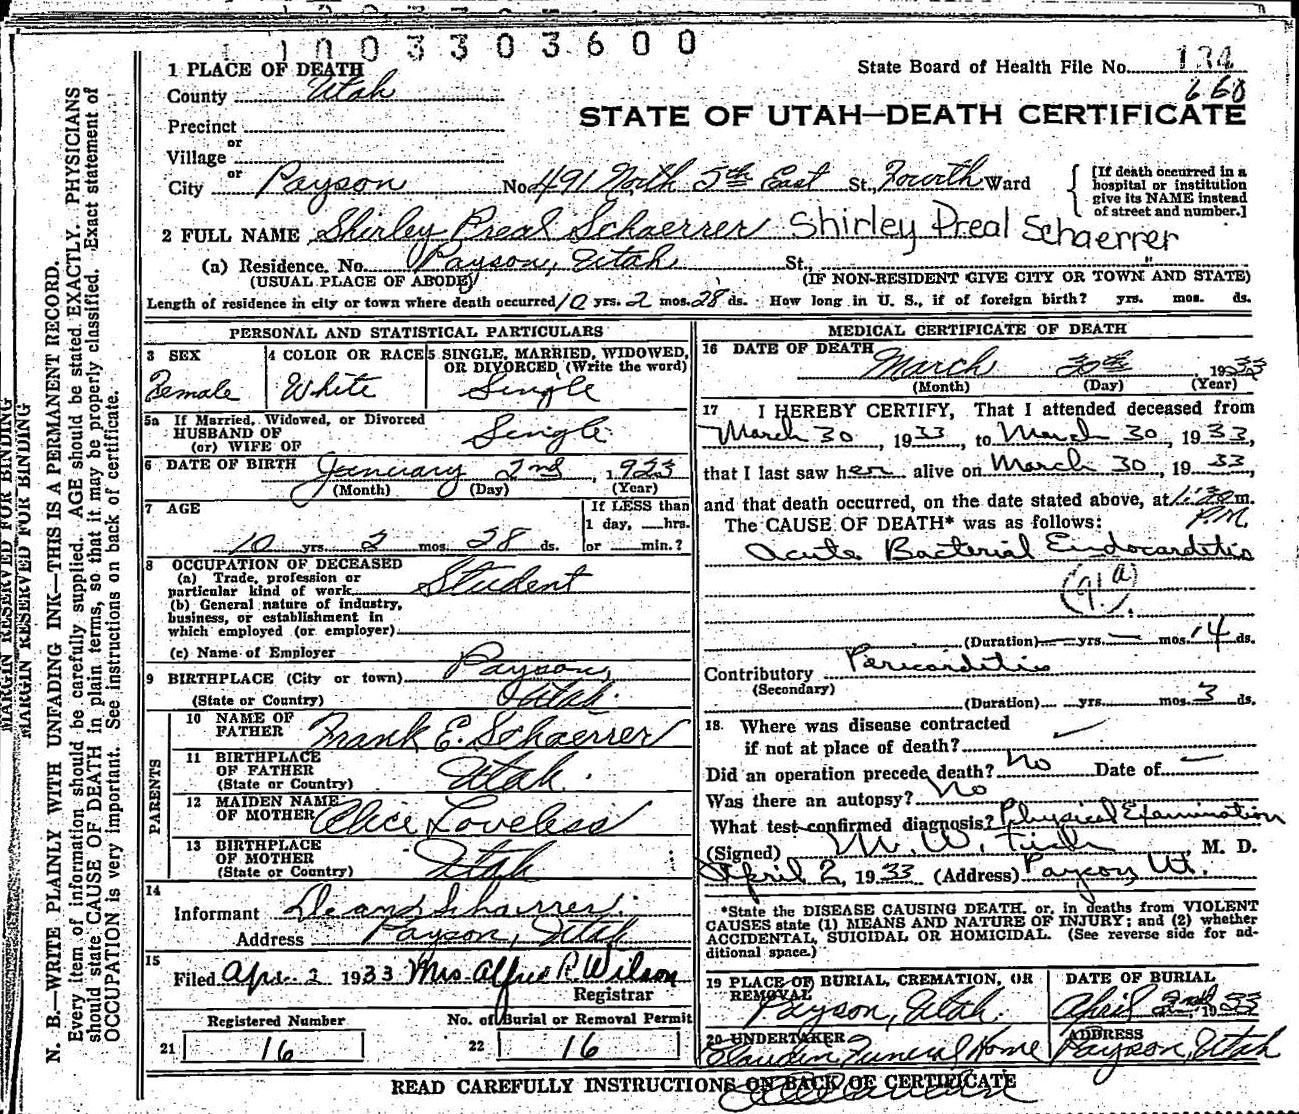 1003303600
1 PLACE OF DEATH
State Board of Health File No. 134
County Utah
660
STATE OF UTAH—DEATH CERTIFICATE
Precinct
or
Village
or
City Payson No. 491 North 5th East St., Fourth Ward
[If death occurred in a hospital or institution give its NAME instead of street and number.]
2 FULL NAME Shirley Preal Schaerrer Shirley Preal Schaerrer
(a) Residence. No. Payson, Utah St.,
(USUAL PLACE OF ABODE) (IF NON-RESIDENT GIVE CITY OR TOWN AND STATE)
Length of residence in city or town where death occurred 10 yrs. 2 mos. 28 ds. How long in U. S., if of foreign birth? yrs. mos. ds.
PERSONAL AND STATISTICAL PARTICULARS
3 SEX
Female
4 COLOR OR RACE
White
5 SINGLE, MARRIED, WIDOWED, OR DIVORCED (Write the word)
Single
5a If Married, Widowed, or Divorced
HUSBAND OF
(or) WIFE OF
Single
6 DATE OF BIRTH January 2nd, 1923
(Month) (Day) (Year)
7 AGE
10 yrs. 2 mos. 28 ds.
If LESS than
1 day, hrs.
or min.?
8 OCCUPATION OF DECEASED
(a) Trade, profession or
particular kind of work Student
(b) General nature of industry,
business, or establishment in
which employed (or employer)
(c) Name of Employer
9 BIRTHPLACE (City or town) Payson,
(State or Country) Utah.
PARENTS
10 NAME OF
FATHER Frank E. Schaerrer
11 BIRTHPLACE
OF FATHER
(State or Country) Utah.
12 MAIDEN NAME
OF MOTHER Alice Loveless
13 BIRTHPLACE
OF MOTHER
(State or Country) Utah
14
Informant Schaerrer.
Address Payson, Utah
15
Filed Apr. 2 1933 Mrs Alfred R. Wilson
Registrar
Registered Number
21 16
No. of Burial or Removal Permit
22 16
MEDICAL CERTIFICATE OF DEATH
16 DATE OF DEATH
March 30th, 1933
(Month) (Day) (Year)
17 I HEREBY CERTIFY, That I attended deceased from
March 30, 1933, to March 30, 1933,
that I last saw her alive on March 30, 1933
and that death occurred, on the date stated above, at 1:30 m.
P.M.
The CAUSE OF DEATH* was as follows:
Acute Bacterial Endocarditis
(91a)
(Duration) — yrs. — mos. 14 ds.
Contributory Pericarditis
(Secondary)
(Duration) yrs. mos. 3 ds.
18. Where was disease contracted
if not at place of death?
Did an operation precede death? No Date of —
Was there an autopsy? No
What test confirmed diagnosis? Physical Examination
(Signed) M. W. M. D.
April 2, 1933 (Address) Payson, Ut.
*State the DISEASE CAUSING DEATH, or, in deaths from VIOLENT
CAUSES state (1) MEANS AND NATURE OF INJURY; and (2) whether
ACCIDENTAL, SUICIDAL OR HOMICIDAL. (See reverse side for ad-
ditional space.)
19 PLACE OF BURIAL, CREMATION, OR
REMOVAL
Payson, Utah.
DATE OF BURIAL
April 2nd 1933
20 UNDERTAKER
Claudin Funeral Home
ADDRESS
Payson, Utah
READ CAREFULLY INSTRUCTIONS ON BACK OF CERTIFICATE
MARGIN RESERVED FOR BINDING
MARGIN RESERVED FOR BINDING
N. B.—WRITE PLAINLY WITH UNFADING INK—THIS IS A PERMANENT RECORD.
Every item of information should be carefully supplied. AGE should be stated EXACTLY. PHYSICIANS
should state CAUSE OF DEATH in plain terms, so that it may be properly classified. Exact statement of
OCCUPATION is very important. See instructions on back of certificate.